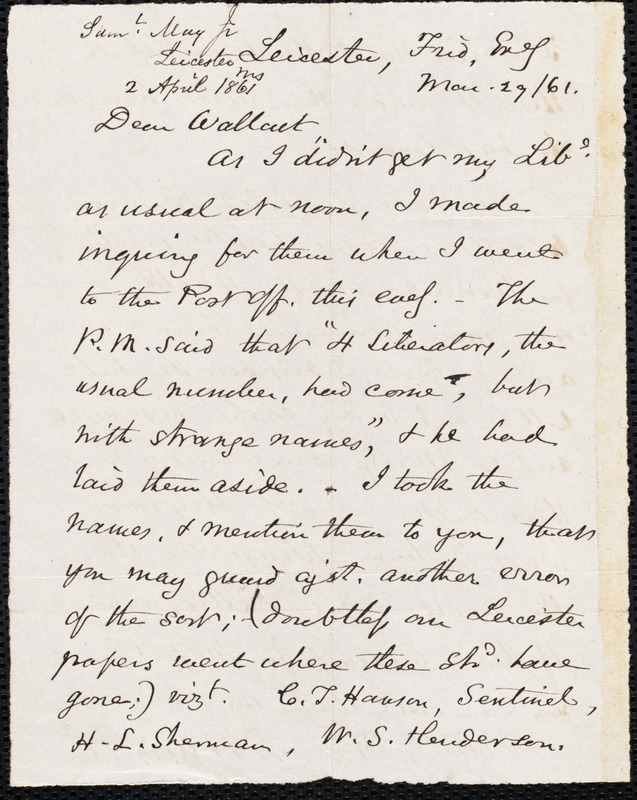 Saml. May Jr
Leicester
2 April 1861
Leicester, Frid, Eveg
Mar. 29/61.
Dear Wallcut
As I didn't get my Libs.
as usual at noon, I made
inquiry for them when I went
to the Post Off. this eveg. - The
P.M. said that "4 Liberators, the
usual number, had come, but
with strange names," & he had
laid them aside. - I took the
names, & mention them to you, that
you may guard agst. another error
of the sort; - (doubtless our Leicester
papers went where these shd. have
gone;) vizt. C. T. Hanson, Sentinel,
H. L. Sherman, W. S. Henderson.